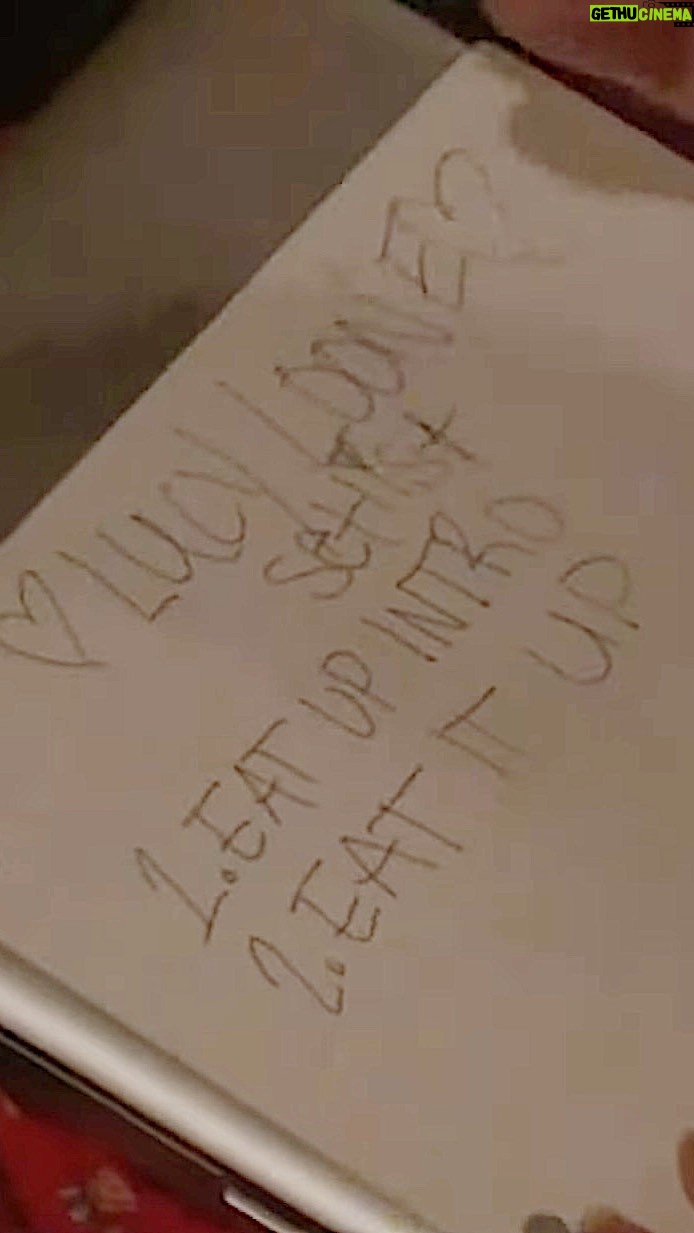 GETHUCINEMA
♡ LUCY LOONE ♡
1. EAT UP INTRO
2. EAT IT UP